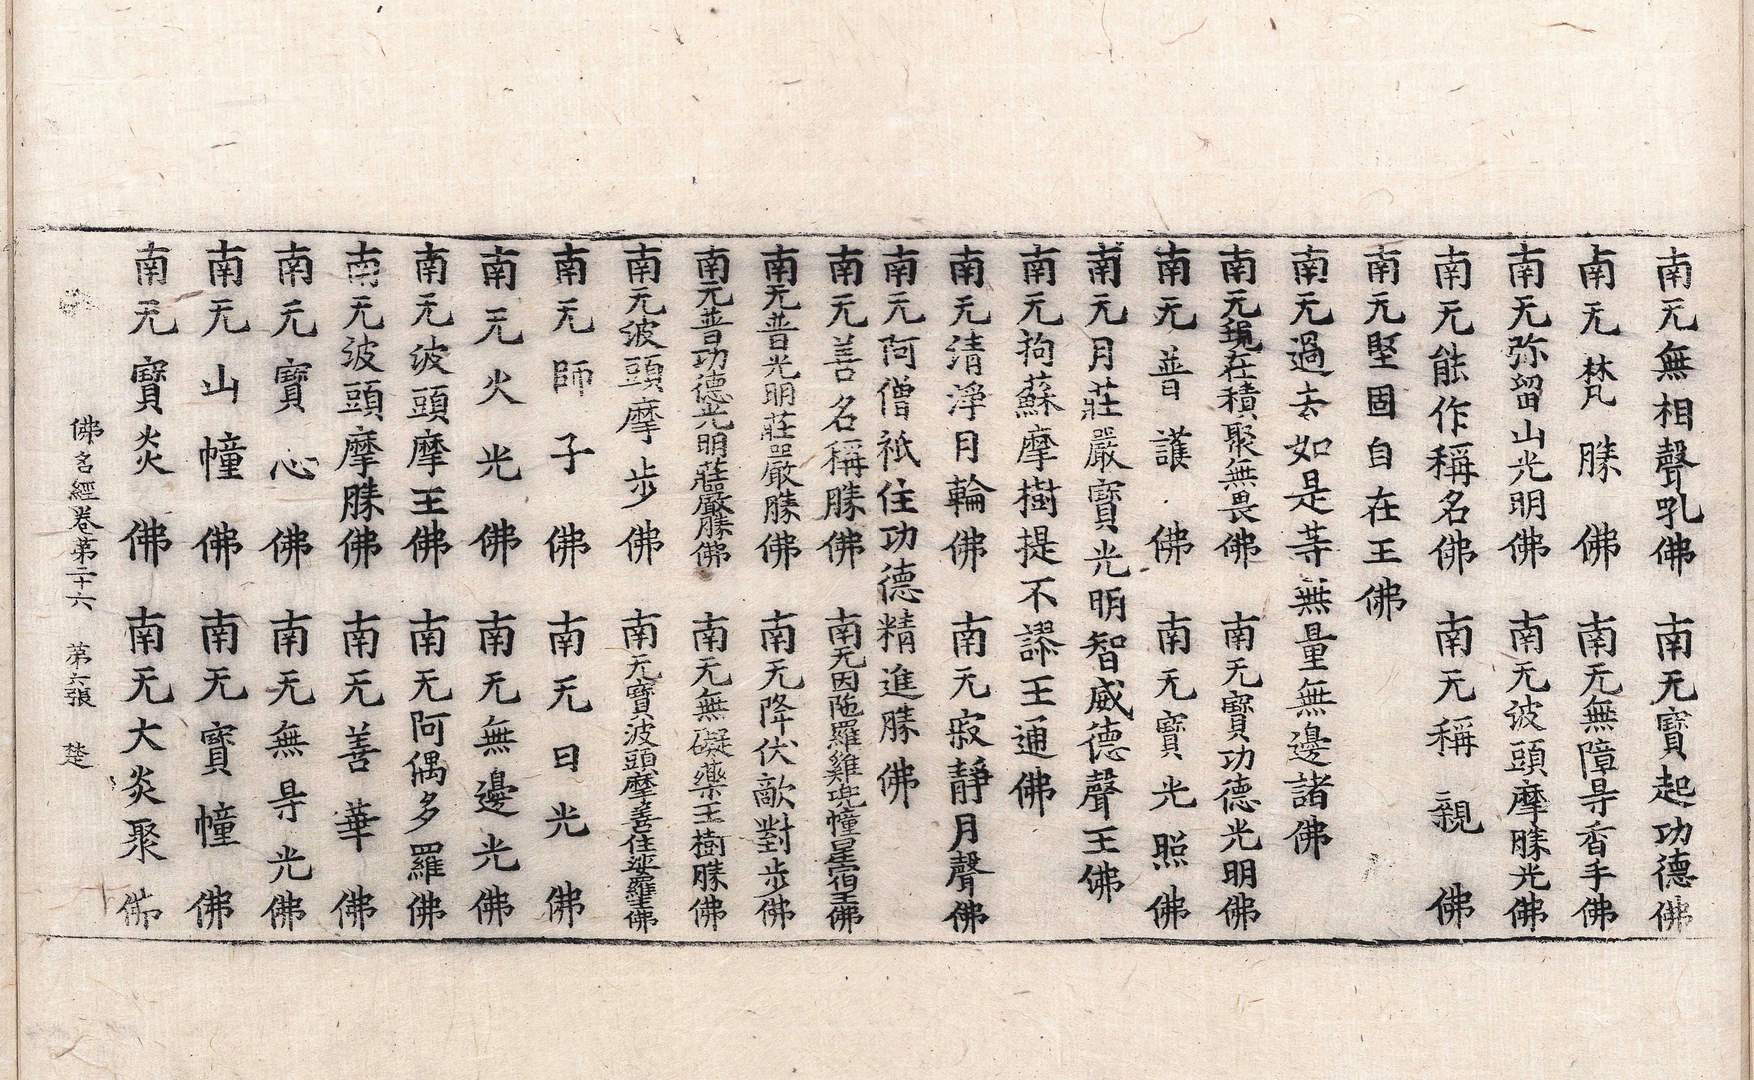 南无無相聲吼佛 南无寶起功德佛
南无梵勝佛 南无無障㝵香手佛
南无弥留山光明佛 南无波頭摩勝光佛
南无能作稱名佛 南无稱親佛
南无堅固自在王佛
南无過去如是等無量無邊諸佛
南无現在積聚無畏佛 南无寶功德光明佛
南无普護佛 南无寶光照佛
南无月莊嚴寶光明智威德聲王佛
南无拘蘇摩樹提不謬王通佛
南无清淨月輪佛 南无寂靜月聲佛
南无阿僧祇住功德精進勝佛
南无善名稱勝佛 南无因陁羅雞兜幢星宿王佛
南无普光明莊嚴勝佛 南无降伏敵對步佛
南无普功德光明莊嚴勝佛 南无無礙藥王樹勝佛
南无波頭摩步佛 南无寶波頭摩善住娑羅王佛
南无師子佛 南无日光佛
南无火光佛 南无無邊光佛
南无波頭摩王佛 南无阿偶多羅佛
南无波頭摩勝佛 南无善華佛
南无寶心佛 南无無㝵光佛
南无山幢佛 南无寶幢佛
南无寶炎佛 南无大炎聚佛
佛名經卷第二十六 第六張 楚